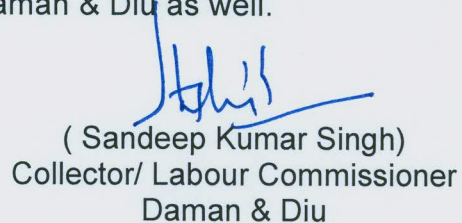 aman & Diu as well.
( Sandeep Kumar Singh)
Collector/ Labour Commissioner
Daman & Diu